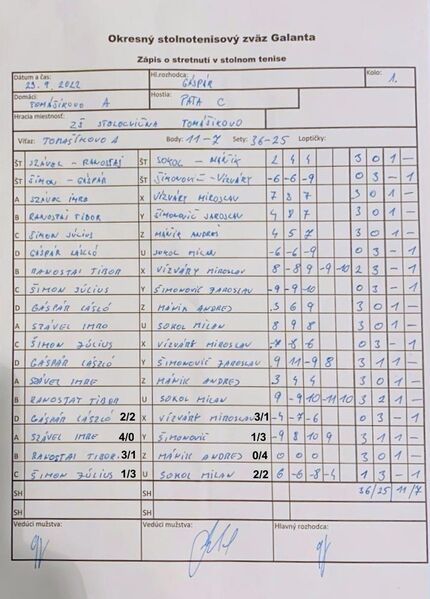 Okresný stolnotenisový zväz Galanta
Zápis o stretnutí v stolnom tenise
Dátum a čas: 23.9.2022 Hl.rozhodca: GÁSPÁR Kolo: 1.
Domáci: TOMÁŠIKOVO A Hostia: PATA C
Hracia miestnosť: ZŠ STOLOVIČNA TOMÁŠIKOVO
Víťaz: TOMAŠÍKOVO A Body: 11-7 Sety: 36-25 Loptičky:
ŠT SZÁVEL - RANOSTAJ ŠT SOKOL - MÁŇIK 2 4 4 3 0 1 -
ŠT ŠIMON - GÁSPÁR ŠT ŠIMONOVIČ - VÍZVÁRY -6 -6 -9 0 3 - 1
A SZÁVEL IMRO X VÍZVÁRY MIROSLAV 7 8 7 3 0 1 -
B RANOSTAJ TIBOR Y ŠIMONOVIČ JAROSLAV 4 8 7 3 0 1 -
C ŠIMON JÚLIUS Z MÁŇIK ANDREJ 4 5 7 3 0 1 -
D GÁSPÁR LÁSZLÓ U SOKOL MILAN -6 -6 -9 0 3 - 1
B RANOSTAJ TIBOR X VÍZVÁRY MIROSLAV 8 -8 9 -9 -10 2 3 - 1
C ŠIMON JÚLIUS Y ŠIMONOVIČ JAROSLAV -9 -9 -10 0 3 - 1
D GÁSPÁR LÁSZLÓ Z MÁNIK ANDREJ 3 6 9 3 0 1 -
A SZÁVEL IMRO U SOKOL MILAN 8 9 8 3 0 1 -
C ŠIMON JÚLIUS X VÍZVÁRY MIROSLAV -7 -8 -6 0 3 - 1
D GÁSPÁR LÁSZLÓ Y ŠIMONOVIČ JAROSLAV 9 11 -9 8 3 1 1 -
A SZÁVEL IMRE Z MÁNIK ANDREJ 3 4 4 3 0 1 -
B RANOSTAT TIBOR U SOKOL MILAN 9 -9 10 -11 10 3 2 1 -
D GÁSPÁR LÁSZLÓ 2/2 X VÍZVÁRY MIROSLAV 3/1 -4 -7 -6 0 3 - 1
A SZÁVEL IMRE 4/0 Y ŠIMONOVIČ 1/3 -9 8 10 9 3 1 1 -
B RANOSTAJ TIBOR 3/1 Z MÁNIK ANDREJ 0/4 0 0 0 3 0 1 -
C ŠIMON JÚLIUS 1/3 U SOKOL MILAN 2/2 6 -6 -8 -4 1 3 - 1
SH SH 36/25 11/7
SH SH
Vedúci mužstva: Vedúci mužstva: Hlavný rozhodca: